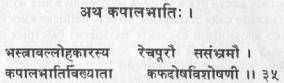 अथ कपालभातिः ।
भस्त्रावल्लोहकारस्य रेचपूरौ ससंभ्रमौ ।
कपालभातिर्विख्याता कफदोषविशोषणी ।। ३५